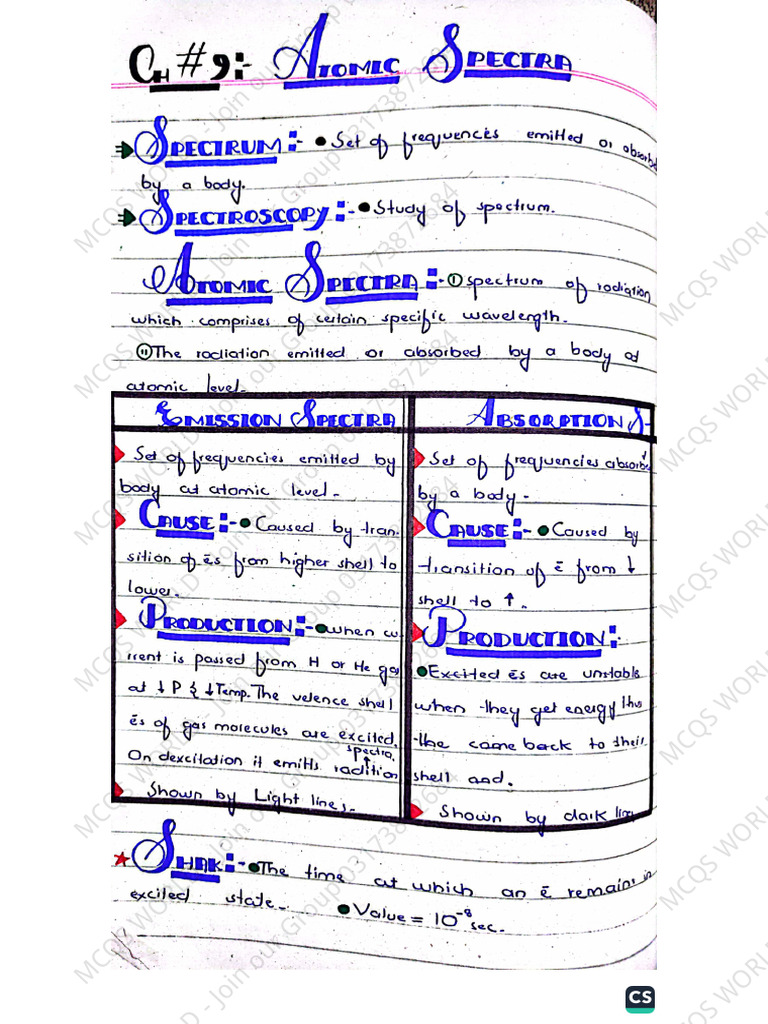 CH # 9:- ATOMIC SPECTRA
SPECTRUM:- Set of frequencies emitted or absorbe
by a body.
SPECTROSCOPY:- Study of spectrum.
ATOMIC SPECTRA:- (i) spectrum of radiation
which comprises of certain specific wavelength.
(ii) The radiation emitted or absorbed by a body at
atomic level.
EMISSION SPECTRA
Set of frequencies emitted by
body at atomic level.
CAUSE:- Caused by tran-
sition of ēs from higher shell to
lower.
PRODUCTION:- when cu
rrent is passed from H or He gas
at ↓ P & ↓ Temp. The velence shell
ēs of gas molecules are excited.
On dexcitation it emitts radition
spectra.
Shown by Light lines.
ABSORPTION S-
Set of frequencies absorbed
by a body.
CAUSE:- Caused by
transition of ē from ↓
shell to ↑.
PRODUCTION:
Excited ēs are unstable
when they get energy thus
the come back to their
shell and.
Shown by dark lin
SHAK:- The time at which an ē remains in
excited state. Value = 10⁻⁸ sec.
MCQS WORLD - Join our Group 03173872684
CS